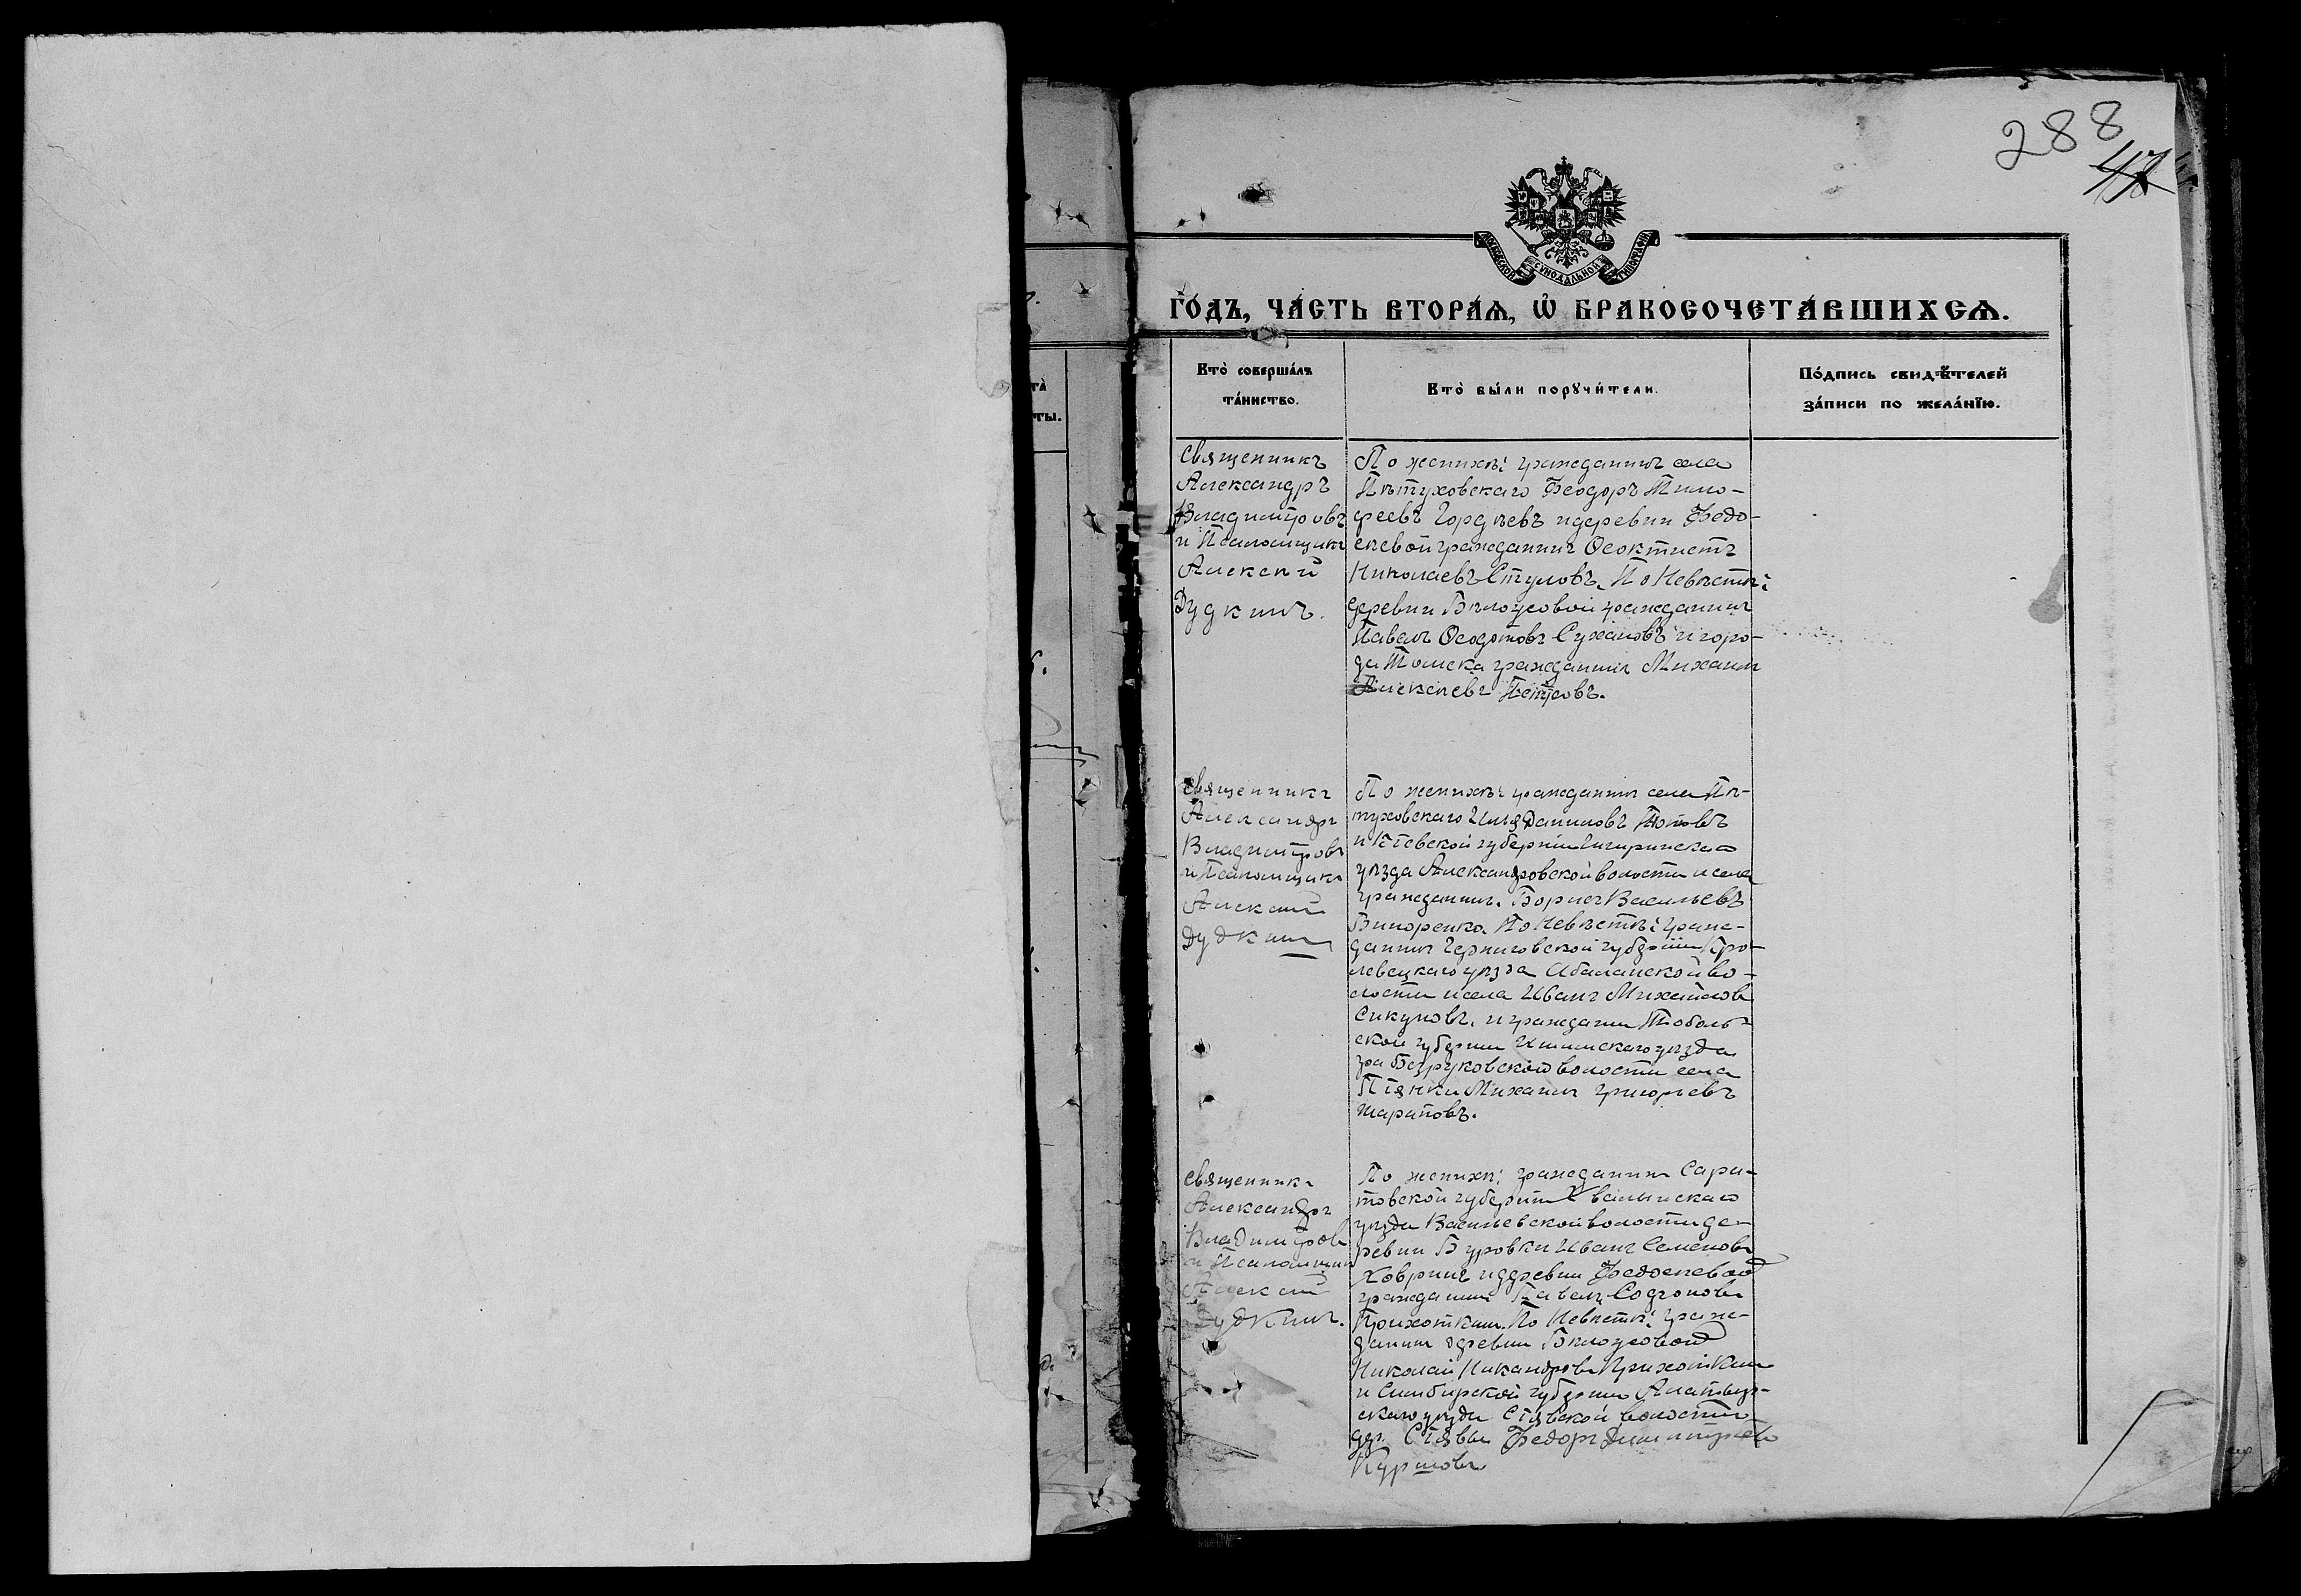 288
47
МОСКОВСКОЙ СУНОДАЛЬНОЙ ТИПОГРАФІИ
ГО́ДЪ, ЧА́СТЬ ВТОРА́Ѧ, Ѡ҆ БРАКОСОЧЕТА́ВШИХСѦ.
Кто̀ соверша́лъ
та́инство.
Кто̀ бы́ли порꙋчи́тели.
По́дпись свидѣ́телей
за́писи по жела́нїю.
та̀
ты.
Священникъ
Александръ
Владиміровъ
и Псаломщикъ
Алексѣй
Дудкинъ.
По женихѣ: гражданинъ села
Пѣтуховскаго Феодоръ Тимо-
феевъ Гордѣевъ и деревни Федо-
сѣевой гражданинъ Ѳеоктистъ
Николаевъ Стуловъ. По Невѣстѣ:
деревни Бѣлоусовой гражданинъ
Павелъ Ѳеодотовъ Сухановъ и горо-
да Томска гражданинъ Михаилъ
Алексѣевъ Петровъ.
Священникъ
Александръ
Владиміровъ
и Псаломщикъ
Алексѣй
Дудкинъ
По женихѣ: гражданинъ села Пѣ-
туховскаго Илія Даниловъ
и Кіевской губерніи Чигиринскаго
уѣзда Александровской волости и села
гражданинъ Борисъ Васильевъ
По Невѣстѣ: граж-
данинъ Черниговской губерніи Кро-
левецкаго уѣзда во-
лости и села Иванъ Михайловъ
Сикуновъ. и гражданин Тоболь-
ской губерніи Ишимскаго уѣзда
Безруковской волости села
Михаилъ Григорьевъ
Шараповъ.
Священникъ
Александръ
Владиміровъ
и Псаломщикъ
Алексѣй
Дудкинъ.
По женихѣ: гражданинъ Сара-
товской губерніи Хвалынскаго
уѣзда Васильевской волости де-
ревни Буровки Иванъ Семеновъ
Ховринъ и деревни Федосѣевой
гражданинъ Павелъ
Прихоткин. По Невѣстѣ: граж-
данинъ деревни Бѣлоусовой
Николай Никандровъ Прихоткин
и Симбирской губерніи Алатыр-
скаго уѣзда Сіявской волости
дер. Сіявы Федоръ Димитріевъ
Куршовъ